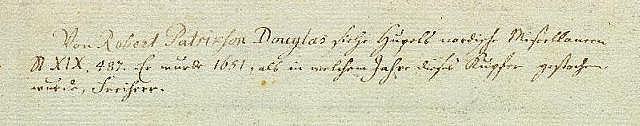 Von Robert Patrikson Douglas siehe Hupels nordische Miscellaneen
St XIX, 487. Er wurde 1651, als in welchem Jahre dieses Kupfer gestochen
wurde, Freiherr.